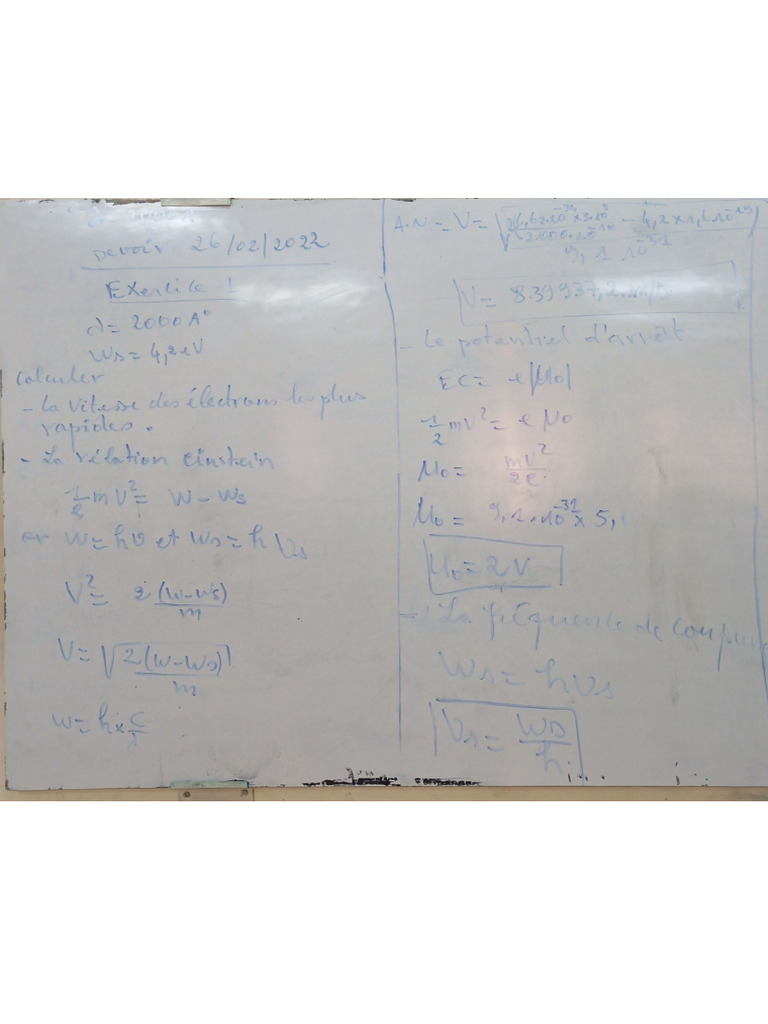 Devoir 26/02/2022
Exercice 1
d = 2000 A°
Ws = 4,2 eV
Calculer
- La vitesse des électrons les plus
rapides.
- La rélation einstein
1/2 mV² = W - Ws
or W = hν et Ws = hνs
V² = 2(W-Ws)/m
V = √2(W-Ws)/m
W = h × C/λ
A.N = V =
V = 839937,2 m/s
- Le potentiel d'arrêt
EC = e|μ0|
1/2 mV² = e μ0
μ0 = mV²/2e
μ0 = 9,1.10⁻³¹ × 5,
μ0 = 2V
- La fréquente de coupure
Ws = hνs
νs = Ws/h